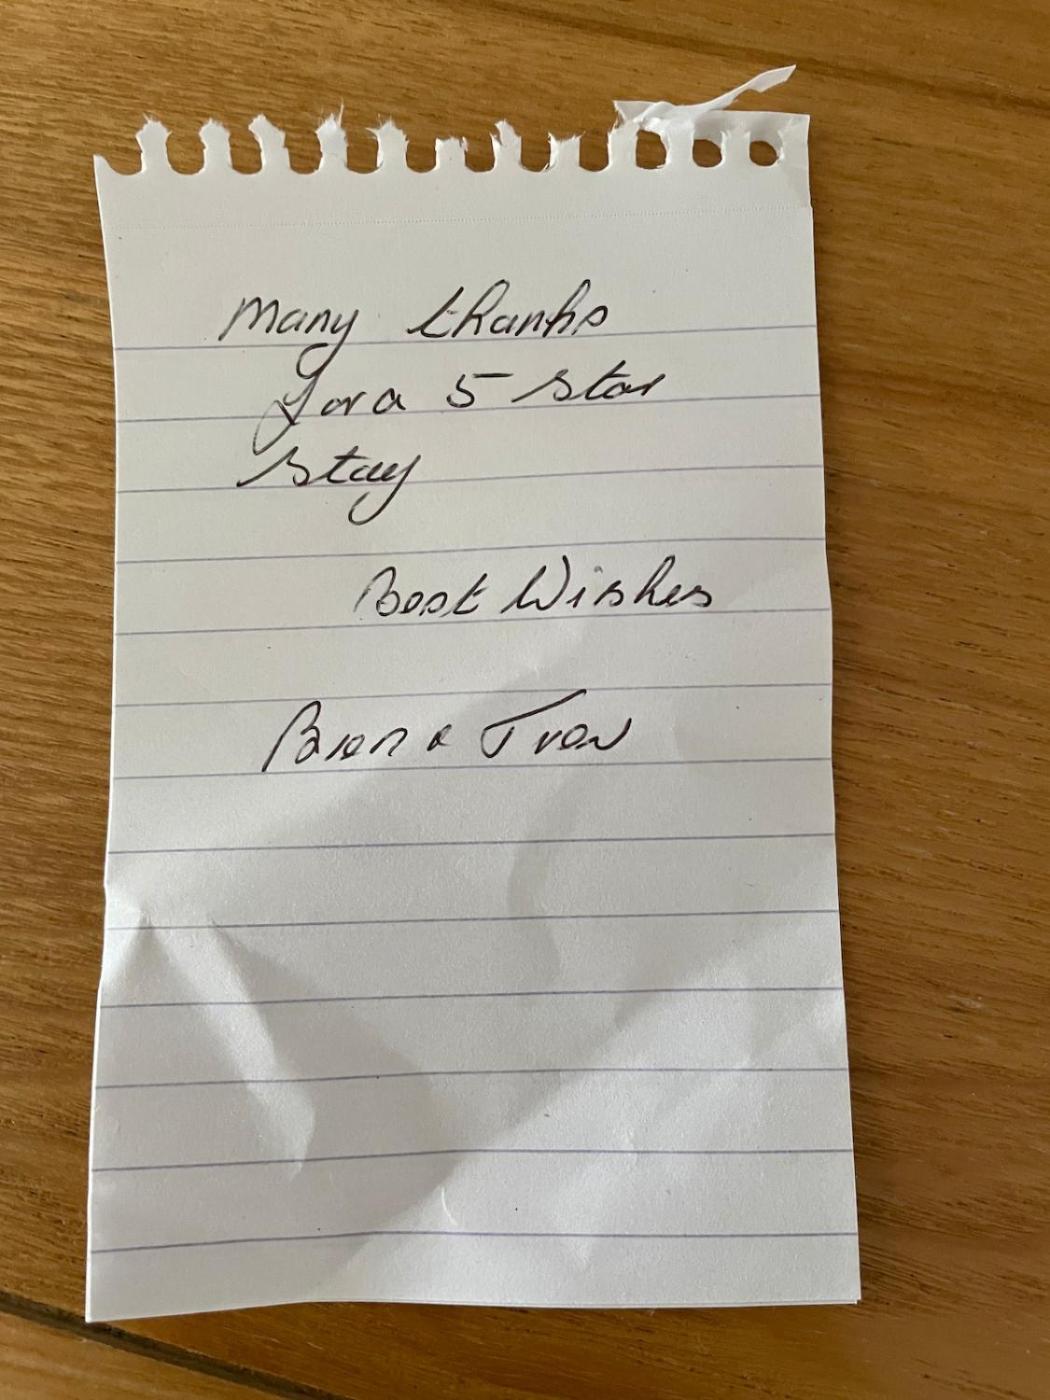 Many thanks
for a 5 star
stay
Best Wishes
& Trev